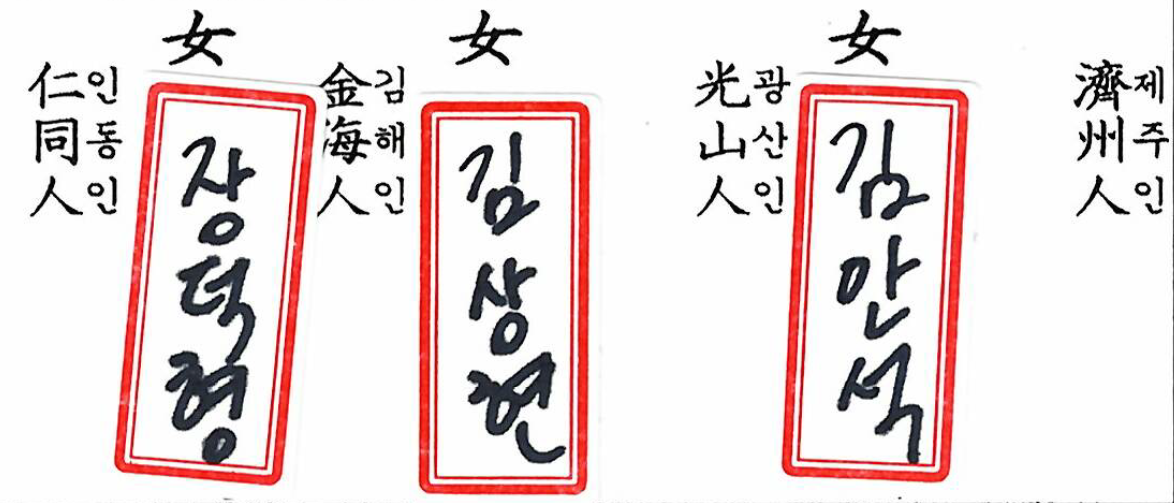 女
仁同人
인동인
장덕형
女
金海人
김해인
김상현
女
光山人
광산인
김안석
濟州人
제주인